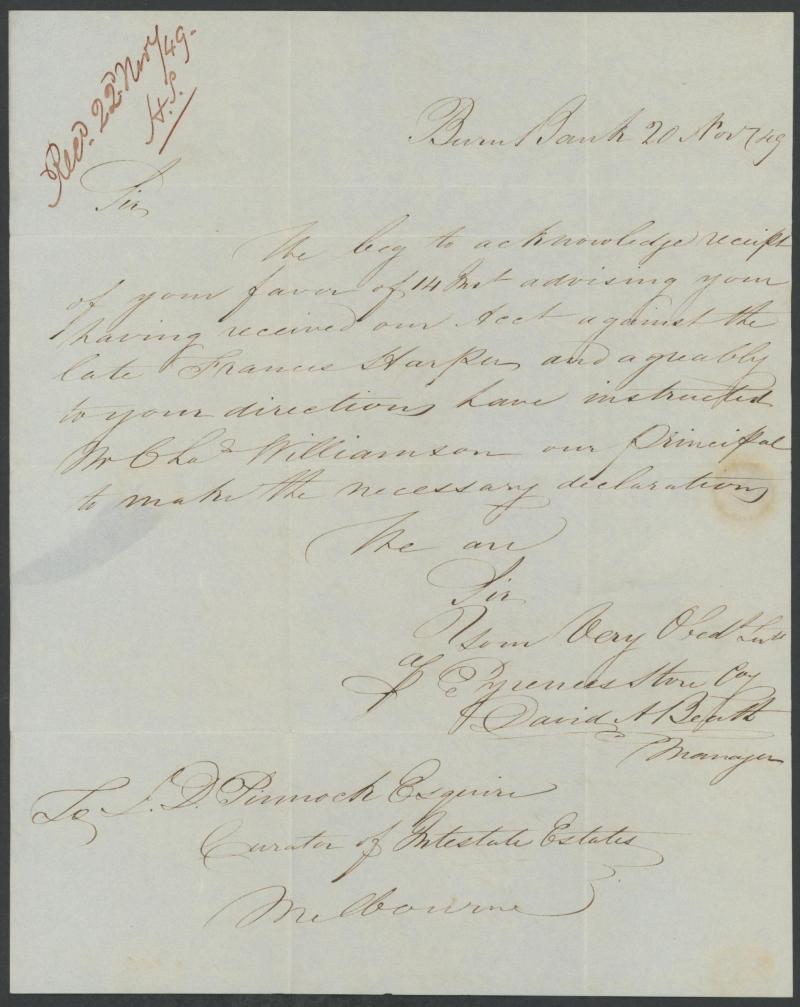 Recd. 22d Novr/49.
H.S.
Burn Bank 20 Novr/49
Sir
We beg to acknowledge receipt
of your favor of 14 Inst advising your
having received our Acct against the
late Francis Harper, and agreably
to your directions have instructed
Mr Chas Williamson our Principal
to make the necessary declarations
We are
Sir
Your Very Obedt Servts
Pyrenees Store Coy
David A Beath
Manager
To J. D. Pinnock Esquire
Curator of Intestate Estates
Melbourne